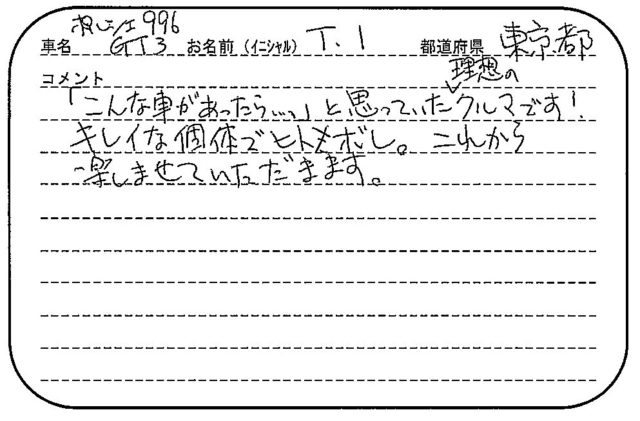 ポルシェ996
車名 GT3 お名前（イニシャル） T.I 都道府県 東京都
コメント 理想の
「こんな車があったら…。」と思っていたクルマです！
キレイな個体でヒトメボレ。これから
楽しませていただきます。